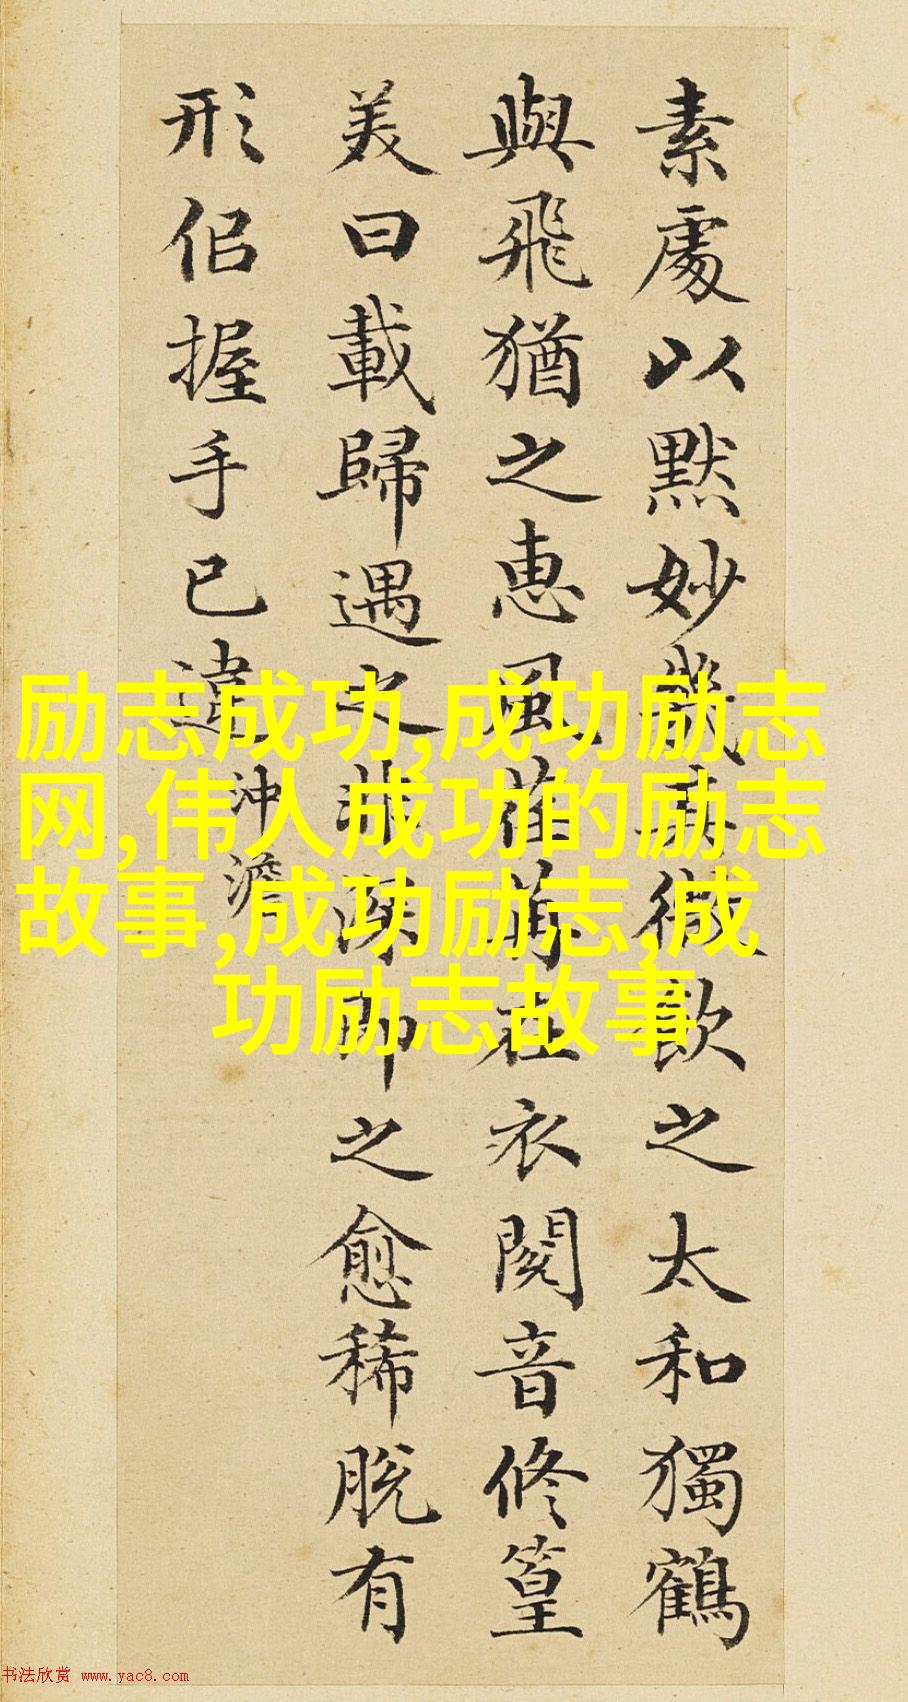 素處以默妙幾其微飲之太和獨鶴
與飛猶之惠風荏苒在衣閱音修篁
美曰載歸遇之非深即之愈稀脫有
形佀握手已違 沖澹
励志成功,成功励志
网,伟人成功的励志
故事,成功励志,成
功励志故事
书法欣赏 www.yac8.com